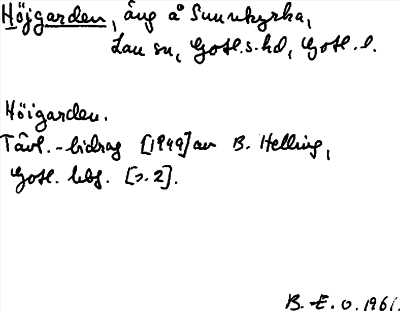 Höjgarden, äng å Sunnkyrka,
Lau sn, Gotl.s.hd, Gotl. l.
Höigarden.
Tävl.-bidrag [1949] av B. Helling,
Gotl. hbf. [s.2].
B. E. o. 1961.